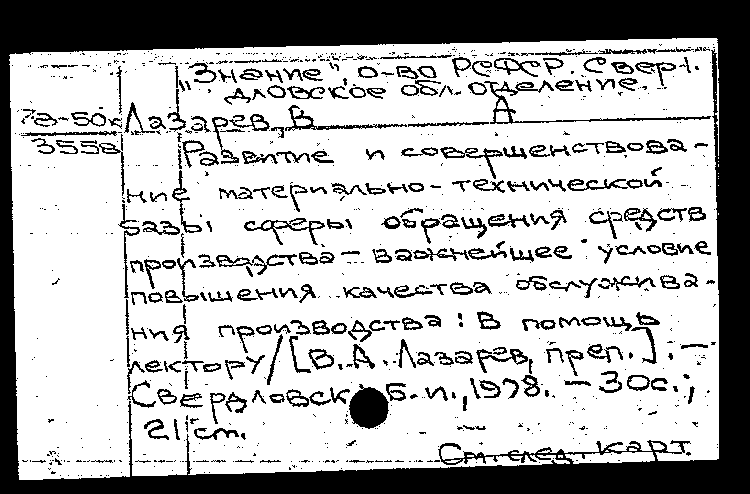 „Знание", о-во РСФСР. Сверд-
ловское обл. отделение.
78-50к Лазарев, В А
355а Развитие и совершенствова-
ние материально-технической
базы сферы обращения средств
производства - важнейшее условие
повышения качества обслужива-
ния производства: В помощь
лектору/[В. А. Лазарев, преп.]. -
Свердловск Б. и., 1978. - 30с.;
21 см.
См. след. карт.